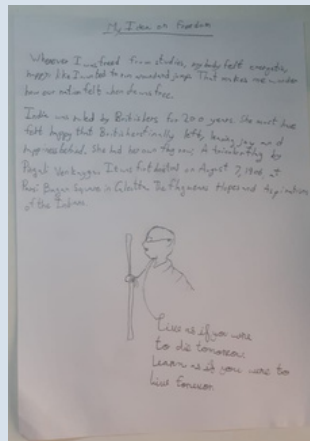 My Idea on Freedom
Whenever I was freed from studies, my body felt energetic,
happy like I wanted to run around and jump. That makes me wonder
how our nation felt when she was free.
India was ruled by Britishers for 200 years. She must have
felt happy that Britishers finally left, leaving joy and
happiness behind. She had her own flag now; A tricolor flag by
Pingali Venkayya. It was first hoisted on August 7, 1906, at
Parsi Bagan Square in Calcutta. The flag means Hopes and Aspirations
of the Indians.
Live as if you were
to die tomorrow.
Learn as if you were to
live forever.